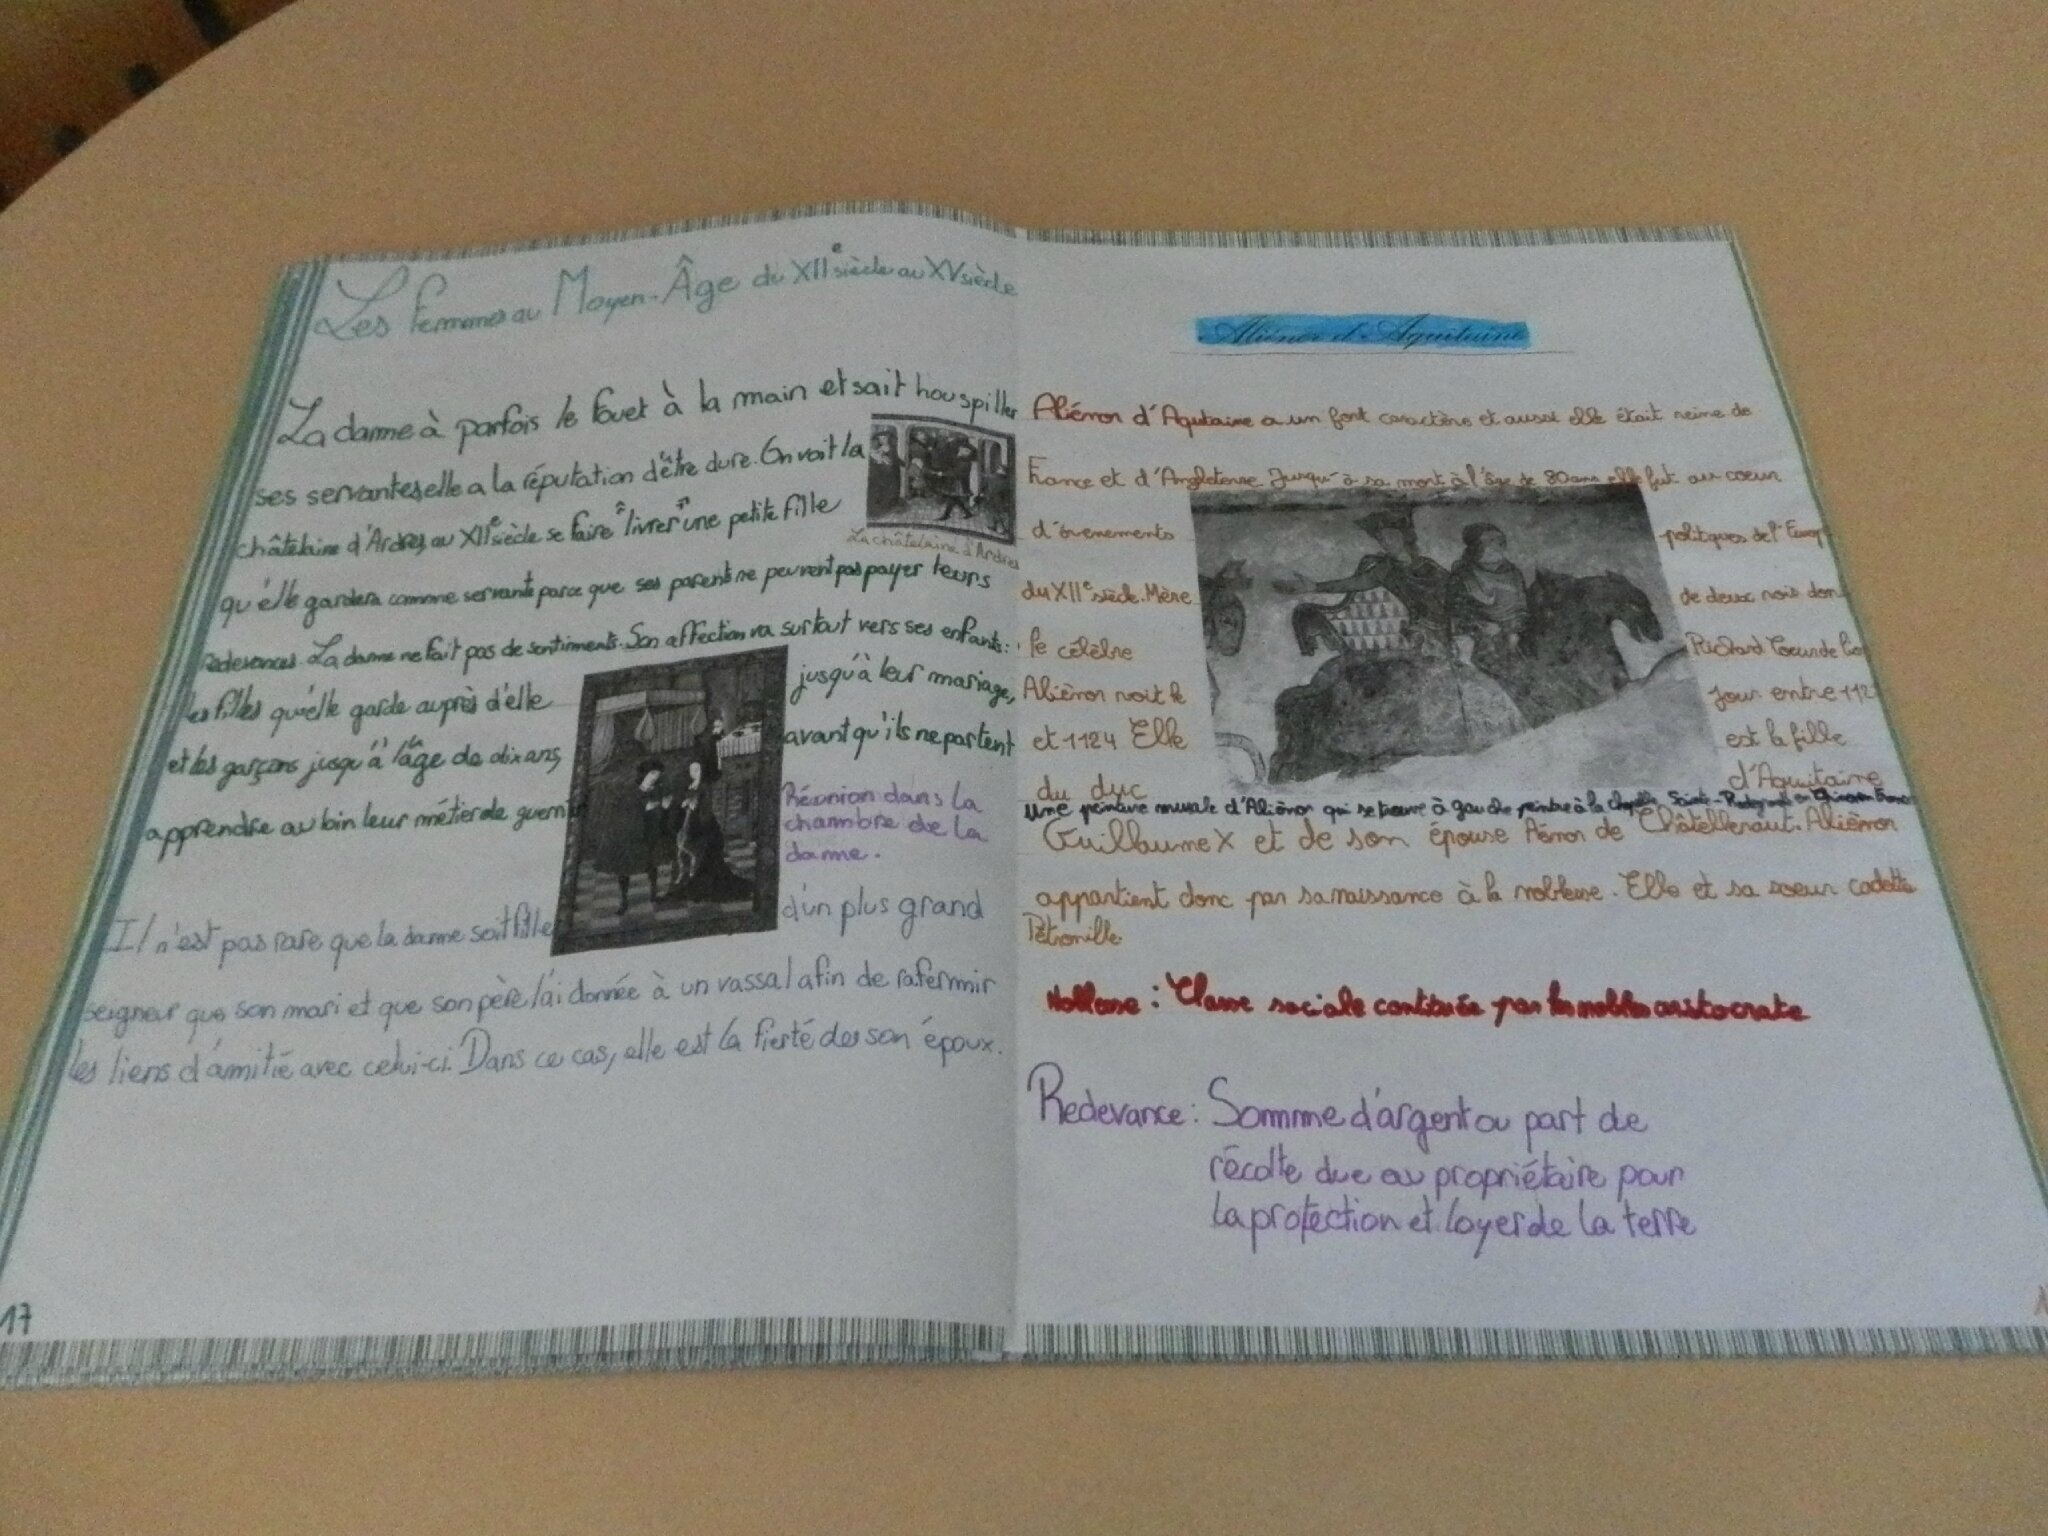 Les Femmes au Moyen-Âge du XIIe siècle au XV siècle
La dame à parfois le fouet à la main et sait houspiller
ses servantes elle a la réputation d'être dure. On voit la
châtelaine d'Ardres, au XIIe siècle se faire "livrer" une petite fille
La châtelaine d'Ardres
qu'elle gardera comme servante parce que ses parents ne peuvent pas payer leurs
redevances. La dame ne fait pas de sentiments. Son affection va surtout vers ses enfants:
les filles qu'elle garde auprès d'elle jusqu'à leur mariage,
et les garçons jusqu'à l'âge de dix ans, avant qu'ils ne partent
apprendre au loin leur métier de
Réunion dans la
chambre de la
dame.
Il n'est pas rare que la dame soit fille d'un plus grand
seigneur que son mari et que son père l'ai donnée à un vassal afin de rafermir
les liens d'amitié avec celui-ci. Dans ce cas, elle est la fierté de son époux.
17
Aliénor d'Aquitaine
Aliénor d'Aquitaine a un fort caractère et aussi elle était reine de
France et d'Angleterre. Jusqu'à sa mort à l'âge de 80 ans elle fut au coeur
d'évenements politiques de l'
du XIIe siècle. Mère de deux rois
le célèbre Richard Coeur de
Aliénor voit le jour entre
et 1124 Elle est la fille
du duc d'Aquitaine
Une peinture murale d'Aliénor qui se trouve à gauche peintre à la chapelle
Guillaume X et de son épouse Aénor de Châtellerault. Aliénor
appartient donc par sa naissance à la noblesse. Elle et sa soeur cadette
Pétronille.
Noblesse : Classe sociale constituée par les nobles aristocrate
Redevance : Somme d'argent ou part de
récolte due au propriétaire pour
la protection et loyer de la terre